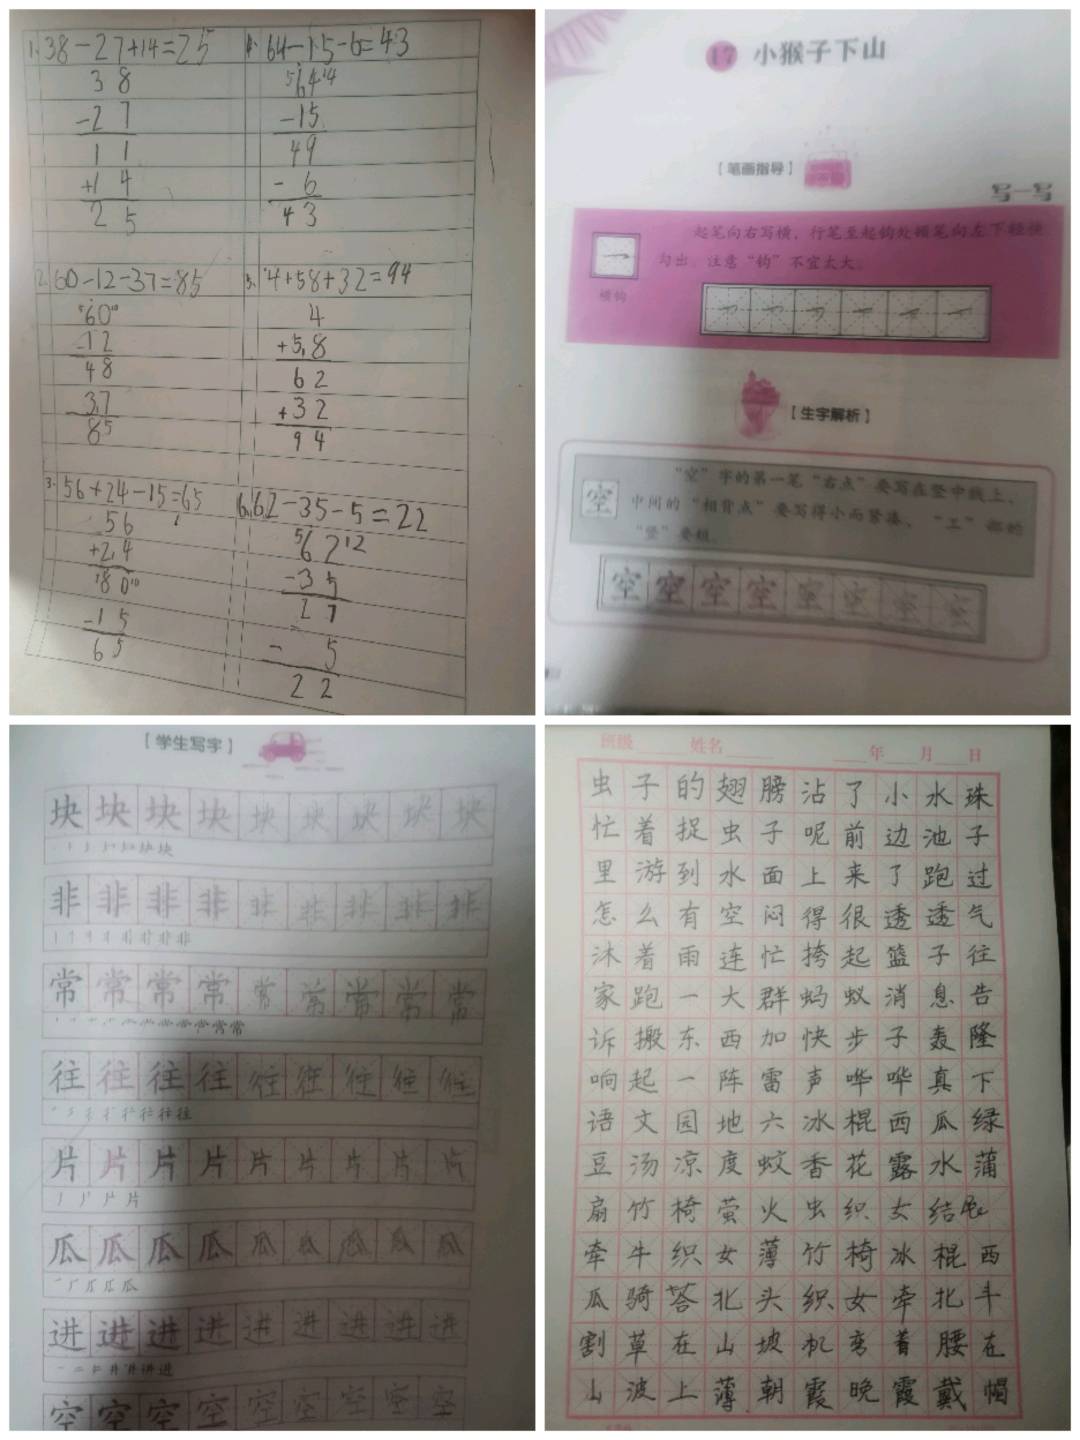 1. 38-27+14=25
38
-27
11
+14
25
2. 60-12-37=85
⁵60¹⁰
-12
48
-37
85
3. 56+24-15=65
56
+24
80¹⁰
-15
65
4. 64-15-6=43
⁵64¹⁴
-15
49
-6
43
5. 4+58+32=94
4
+58
62
+32
94
6. 62-35-5=22
⁵62¹²
-35
27
-5
22
17 小猴子下山
【笔画指导】
写一写
起笔向右写横,行笔至起钩处顿笔向左下轻快
勾出。注意“钩”不宜太大。
横钩
【生字解析】
空
“空”字的第一笔“右点”要写在竖中线上,
中间的“相背点”要写得小而紧凑、“工”部的
“竖”要短。
空空空空空空空空
【学生写字】
块块块块块块块块块
非非非非非非非非非
常常常常常常常常常
往往往往往往往往往
片片片片片片片片片
瓜瓜瓜瓜瓜瓜瓜瓜瓜
进进进进进进进进进
空空空空空空空空空
班级 姓名 年 月 日
虫子的翅膀沾了小水珠
忙着捉虫子呢前边池子
里游到水面上来了跑过
怎么有空闷得很透透气
沐着雨连忙挎起篮子往
家跑一大群蚂蚁消息告
诉搬东西加快步子轰隆
响起一阵雷声哗哗真下
语文园地六冰棍西瓜绿
豆汤凉度蚊香花露水蒲
扇竹椅萤火虫织女结
牵牛织女薄竹椅冰棍西
瓜骑答北头织女牵北斗
割草在山坡机弯着腰在
山波上薄朝霞晚霞戴帽